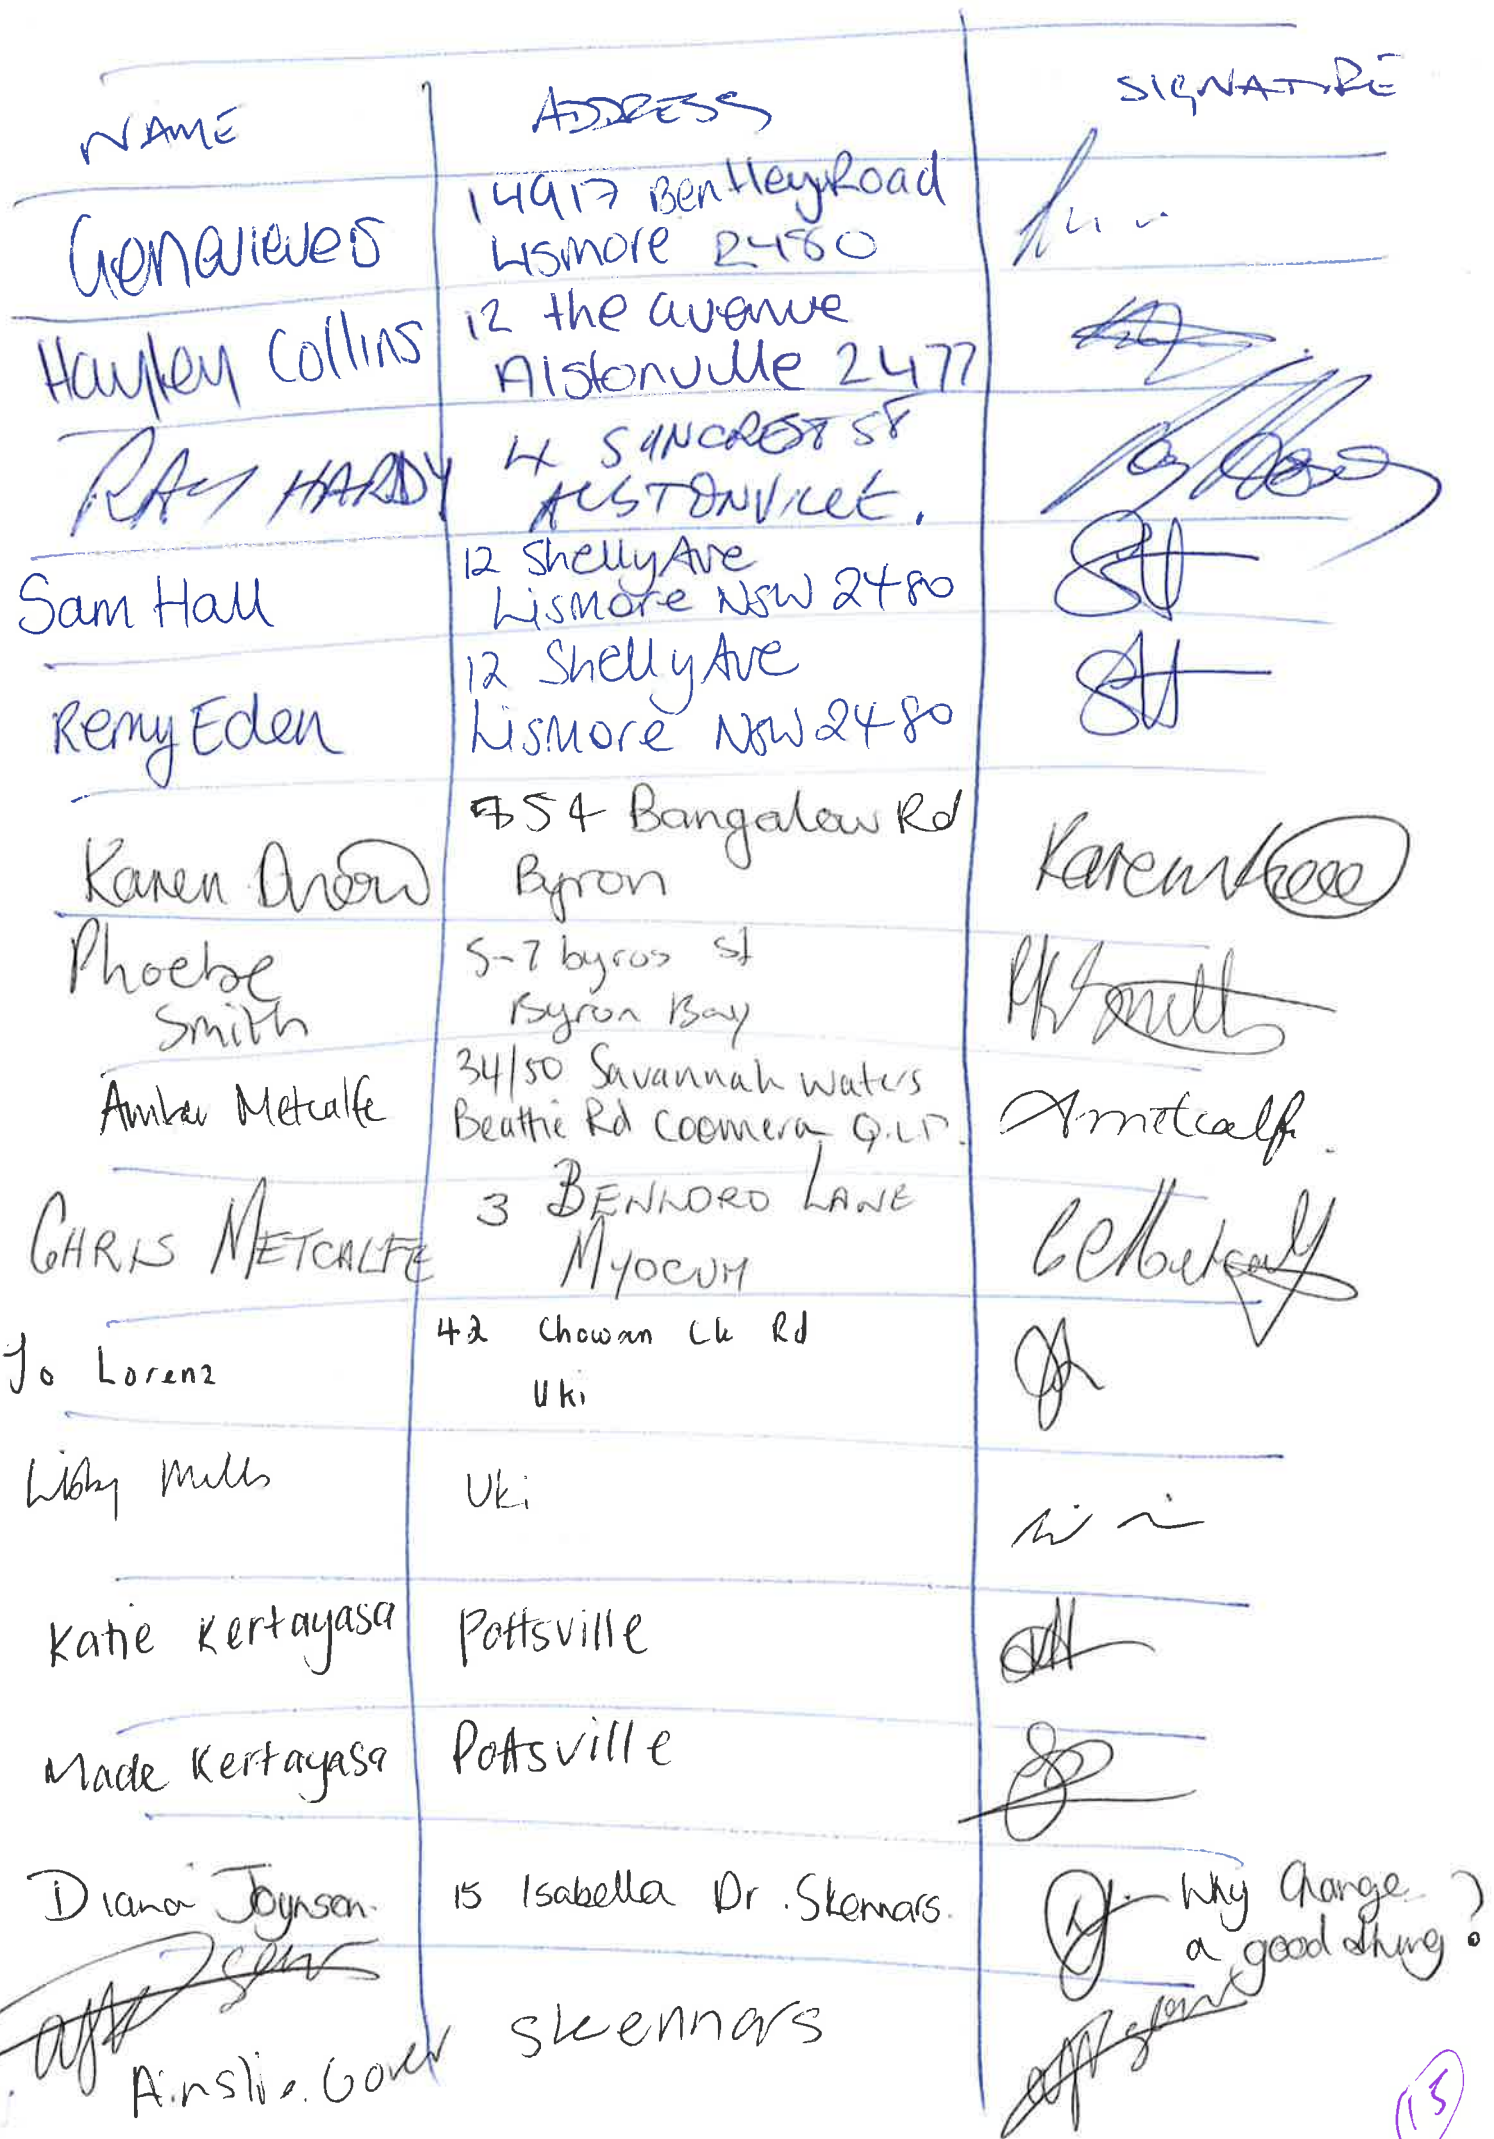 NAME ADDRESS SIGNATURE
Genevieves 14917 Bentley Road
Lismore 2480
Hayley Collins 12 the avenue
Alstonville 2477
RAY HARDY 4 SUNCREST ST
ALSTONVILLE.
Sam Hall 12 Shelly Ave
Lismore NSW 2480
Remy Eden 12 Shelly Ave
Lismore NSW 2480
Karen 54 Bangalow Rd Karen
Byron
Phoebe 5-7 byron st
Smith Byron Bay
Amber Metcalfe 34/50 Savannah waters AMetcalfe.
Beattie Rd Coomera QLD.
CHRIS METCALFE 3 LANE
MYOCUM
Jo Lorenz 42 Chowan Ck Rd
Uki
Libby Mills Uki
Katie Kertayasa Pottsville
Made Kertayasa Pottsville
Diana Joynson. 15 Isabella Dr. Skennars. Why Change
a good thing?
Ainslie. Gover Skennars
15